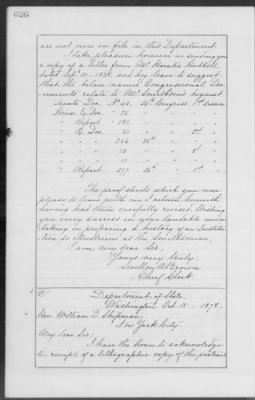 626
are not now on file in this Department.
I take pleasure however in sending you
a copy of a letter from Mr. Horatio Hubbell,
dated Sept. 10. 1838, and beg leave to suggest
that the below named Congressional Doc-
uments relate to Mr. Smithson's bequest
Senate Doc. No. 42. 24th Congress 1st Session
House Ex. Doc. 75. " " "
" Report 181. " " "
" Ex. Doc. 51 " " 2nd "
" " 256 25th " "
" " 10 " " 3d "
" " 11 " " "
" Report 277. 26th " 1st "
The proof sheets which you were
pleased to leave with me I return herewith
having had them carefully revised. Wishing
you every success in your laudable under-
taking in preparing a history of an Institu-
tion so illustrious as the Smithsonian,
I am, my dear Sir,
Yours very truly,
Sevellon A. Brown
Chief Clerk
Department of State,
Washington Oct. 1878.
Hon. William D. Shipman,
New York City.
My Dear Sir:
I have the honor to acknowledge
the receipt of a lithographic copy of the portrait